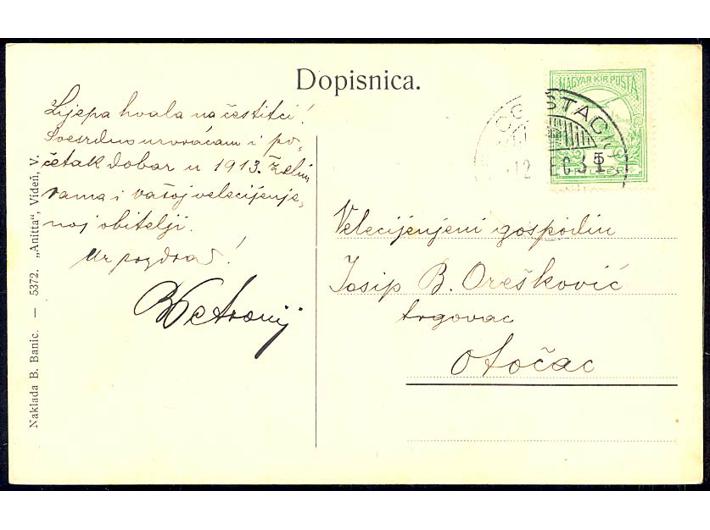 Dopisnica.
MAGYAR KIR. POSTA
12 DEC 31
Lijepa hvala na čestitci!
Svesrdno uzvraćam i po-
četak dobar u 1913. želim
vama i vašoj velecijenje-
noj obitelji.
Uz pozdrav!
Velecijenjeni gospodin
Josip B. Orešković
trgovac
Otočac
Naklada B. Banic. — 5372. „Anitta“, Videń, V.